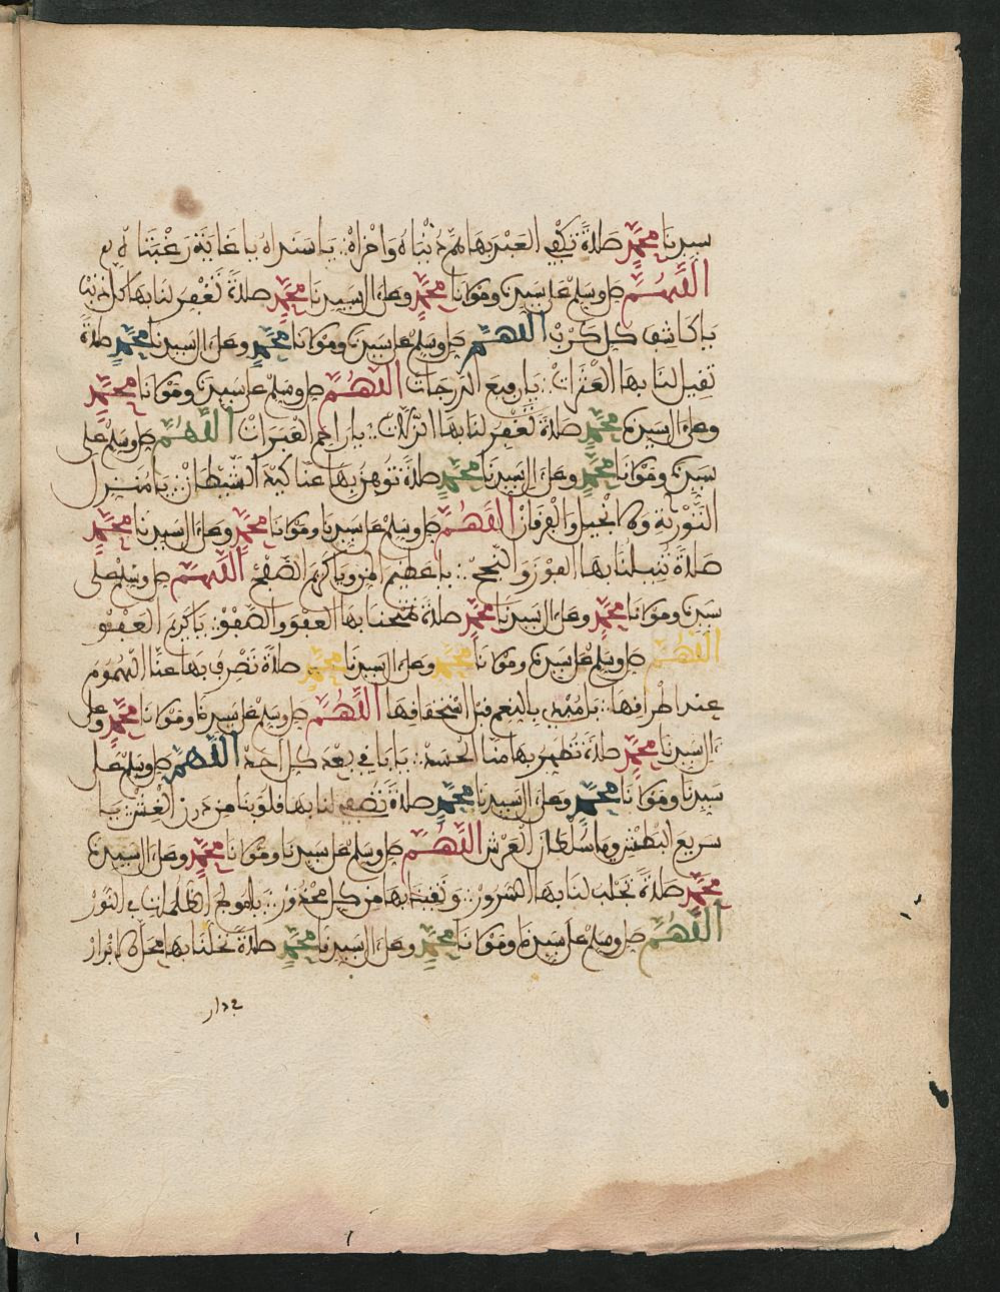 سيدنا محمد صلاة تكفي العبد بها هم دنياه واخراه يا سنداه يا غاية رغبتاه
اللهم صل وسلم على سيدنا ومولانا محمد وعلى ءال سيدنا محمد صلاة تغفر لنا بها كل ذنب
يا كاشف كل كرب اللهم صل وسلم على سيدنا ومولانا محمد وعلى ءال سيدنا محمد صلاة
تقيل لنا بها العثرات يا رفيع الدرجات اللهم صل وسلم على سيدنا ومولانا محمد
وعلى ءال سيدنا محمد صلاة تغفر لنا بها الزلات يا راحم العبرات اللهم صل وسلم على
سيدنا ومولانا محمد وعلى ءال سيدنا محمد صلاة توهن بها عنا كيد الشيطان يا منزل
التورية والانجيل والفرقان اللهم صل وسلم على سيدنا ومولانا محمد وعلى ءال سيدنا محمد
صلاة تنيلنا بها الفوز والنجح يا عظيم المن ويا كريم الصفح اللهم صل وسلم على
سيدنا ومولانا محمد وعلى ءال سيدنا محمد صلاة تمنحنا بها العفو والصفو يا كريم العفو
اللهم صل وسلم على سيدنا ومولانا محمد وعلى ءال سيدنا محمد صلاة تصرف بها عنا الهموم
عند اطرافها يا بالنعم قبل استحقاقها اللهم صل وسلم على سيدنا ومولانا محمد وعلى
ءال سيدنا محمد صلاة تطهر بها منا الحسد يا باقي بعد كل احد اللهم صل وسلم على
سيدنا ومولانا محمد وعلى ءال سيدنا محمد صلاة تصفي لنا بها قلوبنا من درن الغش يا
سريع البطش ويا سلطان العرش اللهم صل وسلم على سيدنا ومولانا محمد وعلى ءال سيدنا
محمد صلاة تجلب لنا بها السرور وتقينا بها من كل محذور يا مولج الظلمات في النور
اللهم صل وسلم على سيدنا ومولانا محمد وعلى ءال سيدنا محمد صلاة تحلنا بها محل الابرار